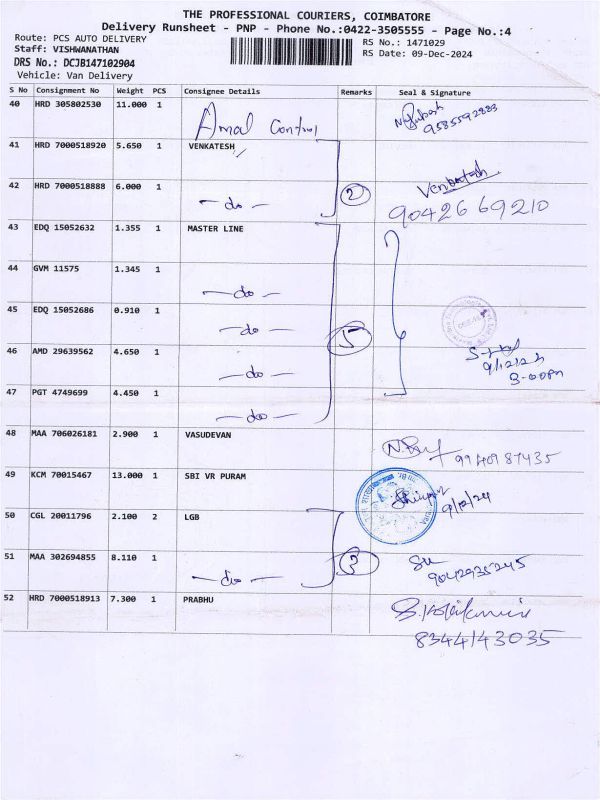 THE PROFESSIONAL COURIERS, COIMBATORE
Delivery Runsheet - PNP - Phone No.:0422-3505555 - Page No.:4
Route: PCS AUTO DELIVERY
RS No.: 1471029
Staff: VISHWANATHAN
RS Date: 09-Dec-2024
DRS No.: DCJB147102904
Vehicle: Van Delivery
S No Consignment No Weight PCS Consignee Details Remarks Seal & Signature
40 HRD 305802530 11.000 1 Amal Control
9585592883
41 HRD 7000518920 5.650 1 VENKATESH
42 HRD 7000518888 6.000 1 -do- 2 Venkatesh
9042669210
43 EDQ 15052632 1.355 1 MASTER LINE
44 GVM 11575 1.345 1 -do-
45 EDQ 15052686 0.910 1 -do- 5
46 AMD 29639562 4.650 1 -do-
9/12/24
3-00pm
47 PGT 4749699 4.450 1 -do-
48 MAA 706026181 2.900 1 VASUDEVAN
9940987435
49 KCM 70015467 13.000 1 SBI VR PURAM
9/12/24
50 CGL 20011796 2.100 2 LGB
51 MAA 302694855 8.110 1 -do- 3
9042935245
52 HRD 7000518913 7.300 1 PRABHU
8344143035